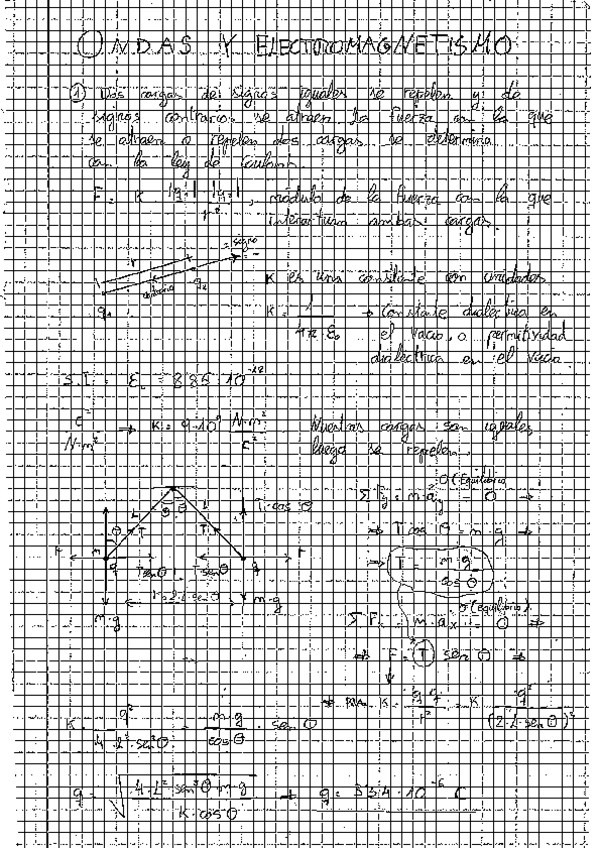 ONDAS Y ELECTROMAGNETISMO
① Dos cargas de signos iguales se repelen y de
signos contrarios se atraen. La fuerza con la que
se atraen o repelen dos cargas se determina
con la ley de Coulomb.
F = K |q₁|·|q₂| / r², módulo de la fuerza con la que
interactúan ambas cargas.
= signo
r
distancia
q₁ q₂
K es una constante con unidades
K = 1 / 4π ε₀ → Constante dieléctrica en
el vacío, o permitividad
dieléctrica en el vacío
S.I = ε₀ = 8'85·10⁻¹²
C² / N·m² → K = 9·10⁹ N·m² / C²
Nuestras cargas son iguales,
luego se repelen.
0 (Equilibrio)
ΣFy = m·ay = 0 →
→ T cos θ = m·g →
→ T = m·g / cos θ
L θ θ L T·cos θ
F q T senθ T senθ q F
r = 2·L·sen θ
m·g m·g
0 (equilibrio)
ΣFx = m·ax = 0 ⇒
⇒ F = T sen θ ⇒
K · q·q / r² = K q² / (2·L·sen θ)²
K · q² / 4·L²·sen²θ = m·g / cos θ · sen θ
q = √(4·L²·sen³θ·m·g / K·cos θ) → q = 3'34·10⁻⁶ C